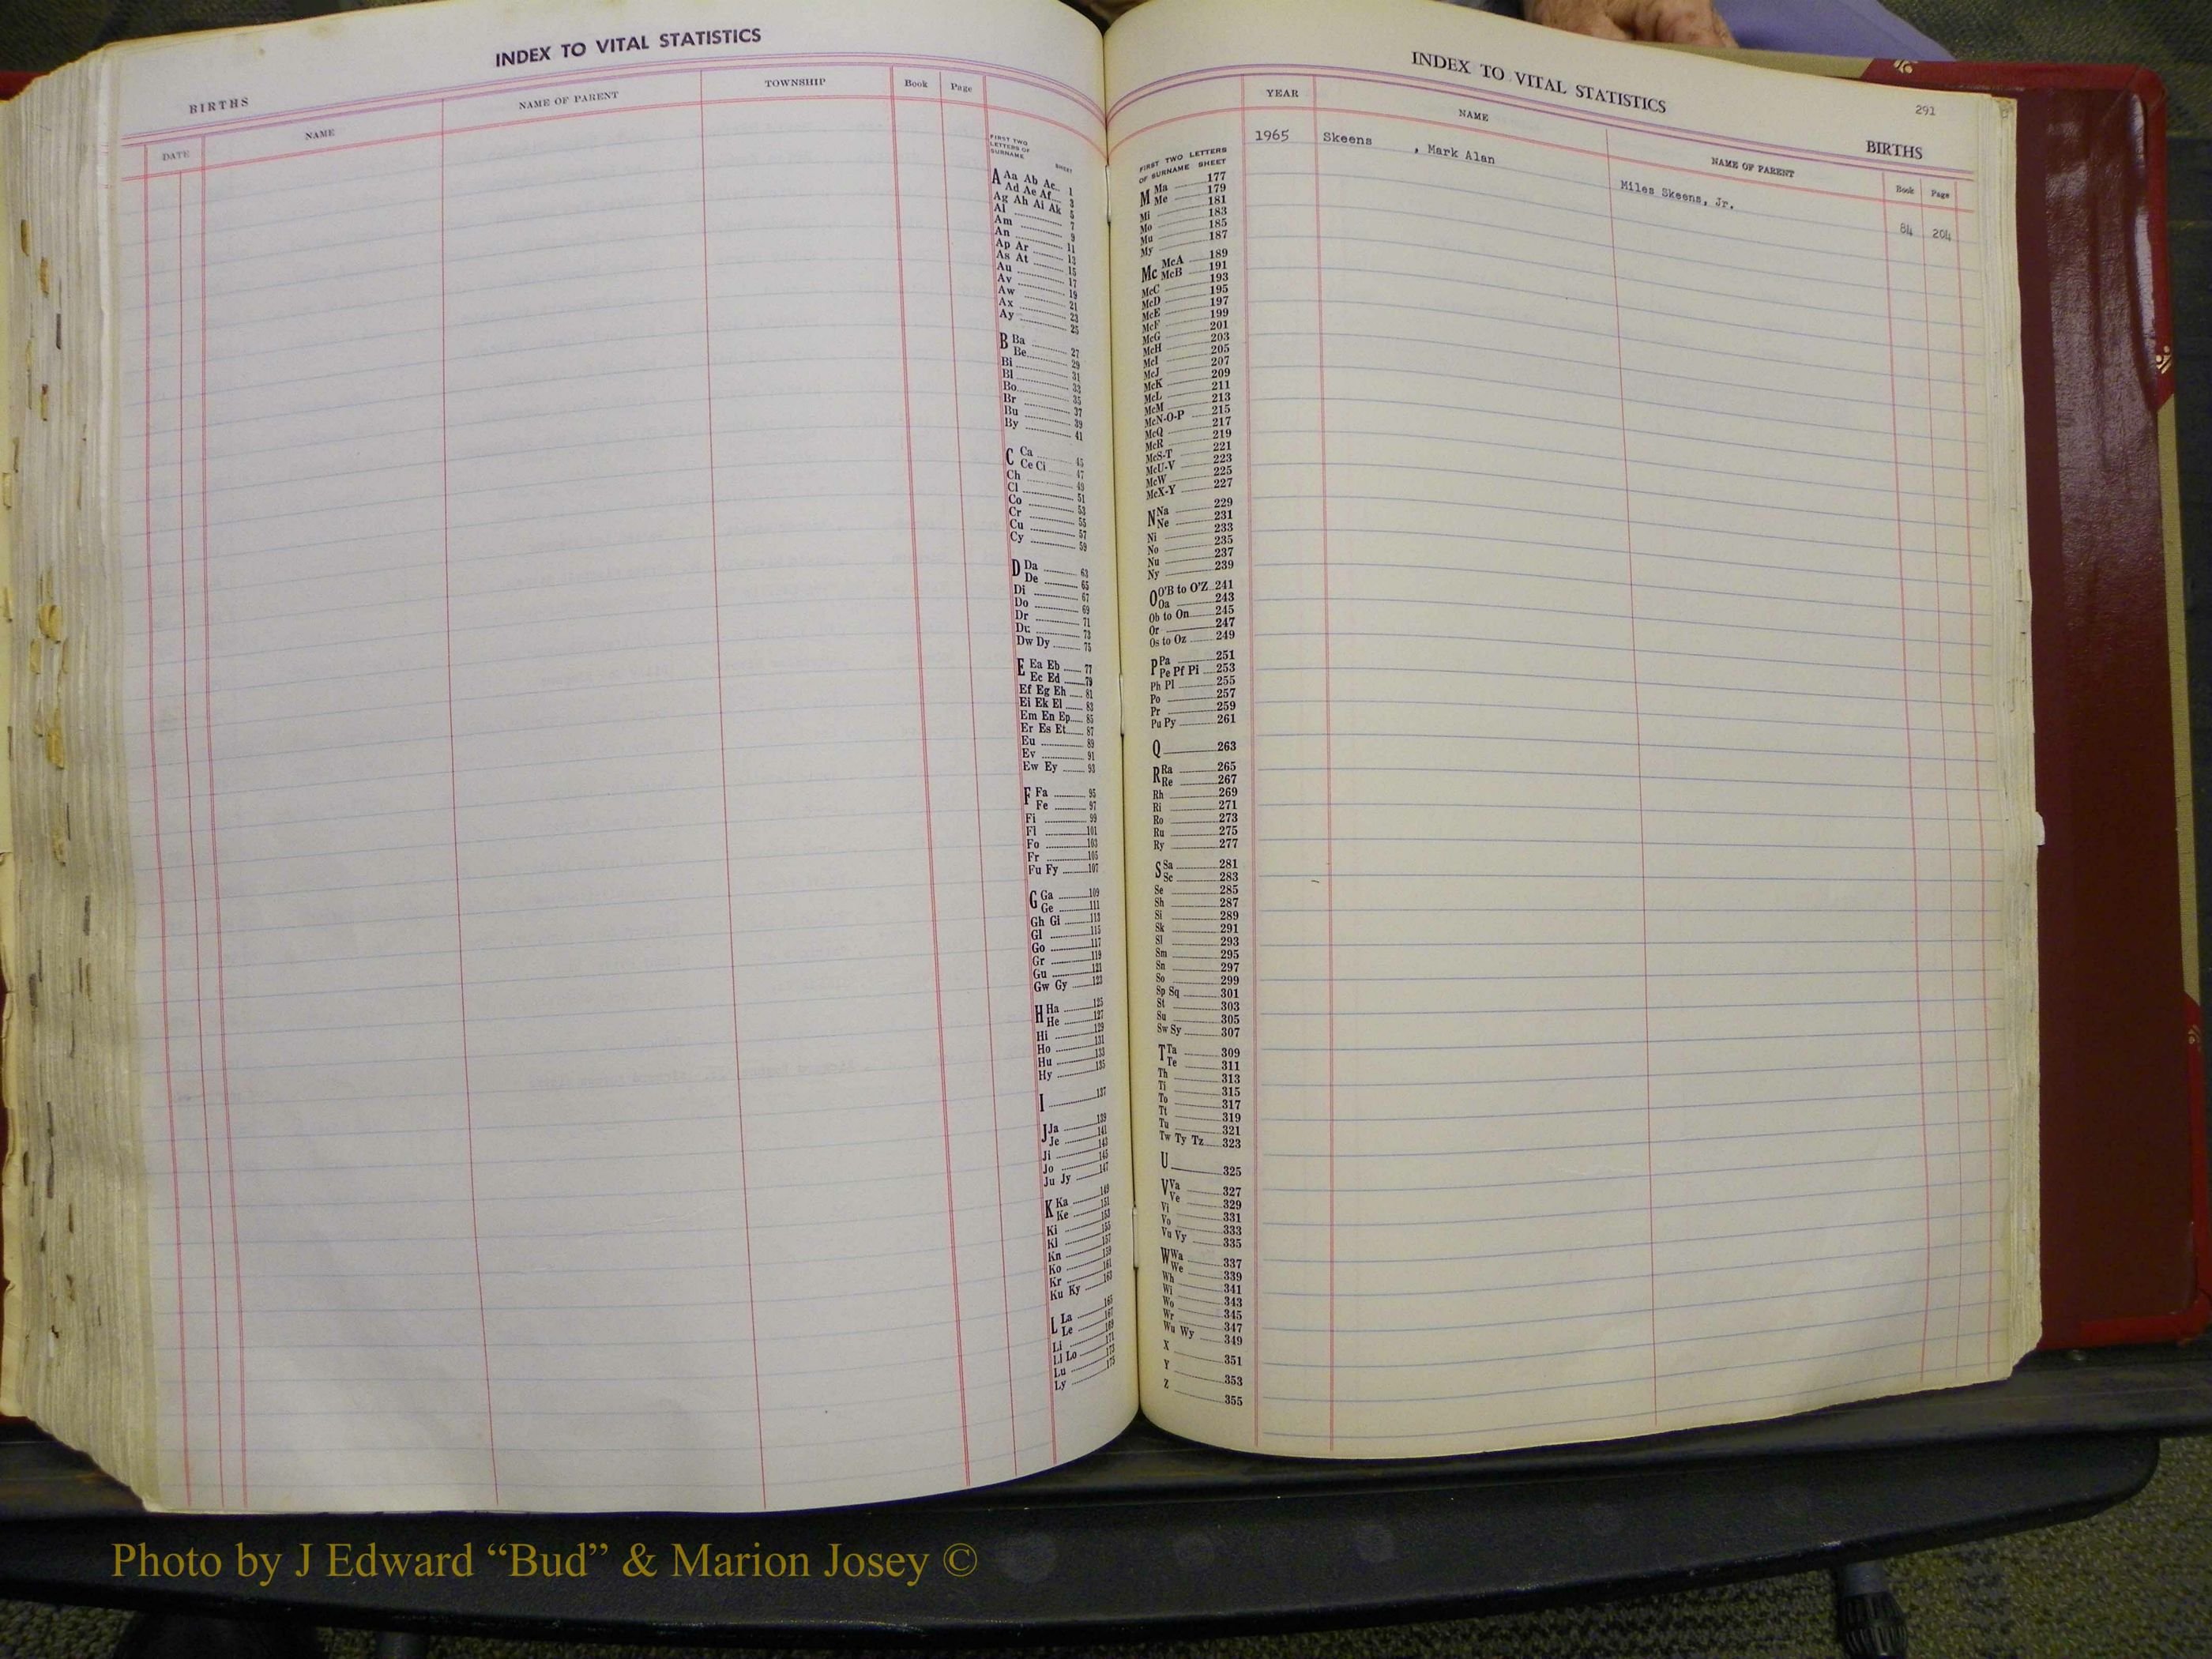 INDEX TO VITAL STATISTICS
BIRTHS
DATE NAME NAME OF PARENT TOWNSHIP Book Page
FIRST TWO
LETTERS OF
SURNAME SHEET
A Aa Ab Ac 1
Ad Ae Af 3
Ag Ah Ai Ak 5
Al 7
Am 9
An 11
Ap Ar 13
As At 15
Au 17
Av 19
Aw 21
Ax 23
Ay 25
B Ba 27
Be 29
Bi 31
Bl 33
Bo 35
Br 37
Bu 39
By 41
C Ca 45
Ce Ci 47
Ch 49
Cl 51
Co 53
Cr 55
Cu 57
Cy 59
D Da 63
De 65
Di 67
Do 69
Dr 71
Du 73
Dw Dy 75
E Ea Eb 77
Ec Ed 79
Ef Eg Eh 81
Ei Ek El 83
Em En Ep 85
Er Es Et 87
Eu 89
Ev 91
Ew Ey 93
F Fa 95
Fe 97
Fi 99
Fl 101
Fo 103
Fr 105
Fu Fy 107
G Ga 109
Ge 111
Gh Gi 113
Gl 115
Go 117
Gr 119
Gu 121
Gw Gy 123
H Ha 125
He 127
Hi 129
Ho 131
Hu 133
Hy 135
I 137
J Ja 139
Je 141
Ji 143
Jo 145
Ju Jy 147
K Ka 149
Ke 151
Ki 153
Kl 155
Kn 157
Ko 159
Kr 161
Ku Ky 163
L La 165
Le 167
Li 169
Ll Lo 171
Lu 173
Ly 175
INDEX TO VITAL STATISTICS
291
BIRTHS
YEAR NAME NAME OF PARENT Book Page
1965 Skeens , Mark Alan Miles Skeens, Jr. 84 204
FIRST TWO LETTERS
OF SURNAME SHEET
M Ma 177
Me 179
Mi 181
Mo 183
Mu 185
My 187
Mc McA 189
McB 191
McC 193
McD 195
McE 197
McF 199
McG 201
McH 203
McI 205
McJ 207
McK 209
McL 211
McM 213
McN-O-P 215
McQ 217
McR 219
McS-T 221
McU-V 223
McW 225
McX-Y 227
N Na 229
Ne 231
Ni 233
No 235
Nu 237
Ny 239
O O'B to O'Z 241
Oa 243
Ob to On 245
Or 247
Os to Oz 249
P Pa 251
Pe Pf Pi 253
Ph Pl 255
Po 257
Pr 259
Pu Py 261
Q 263
R Ra 265
Re 267
Rh 269
Ri 271
Ro 273
Ru 275
Ry 277
S Sa 281
Sc 283
Se 285
Sh 287
Si 289
Sk 291
Sl 293
Sm 295
Sn 297
So 299
Sp Sq 301
St 303
Su 305
Sw Sy 307
T Ta 309
Te 311
Th 313
Ti 315
To 317
Tt 319
Tu 321
Tw Ty Tz 323
U 325
V Va 327
Ve 329
Vi 331
Vo 333
Vu Vy 335
W Wa 337
We 339
Wh 341
Wi 343
Wo 345
Wr 347
Wu Wy 349
X 351
Y 353
Z 355
Photo by J Edward “Bud” & Marion Josey ©